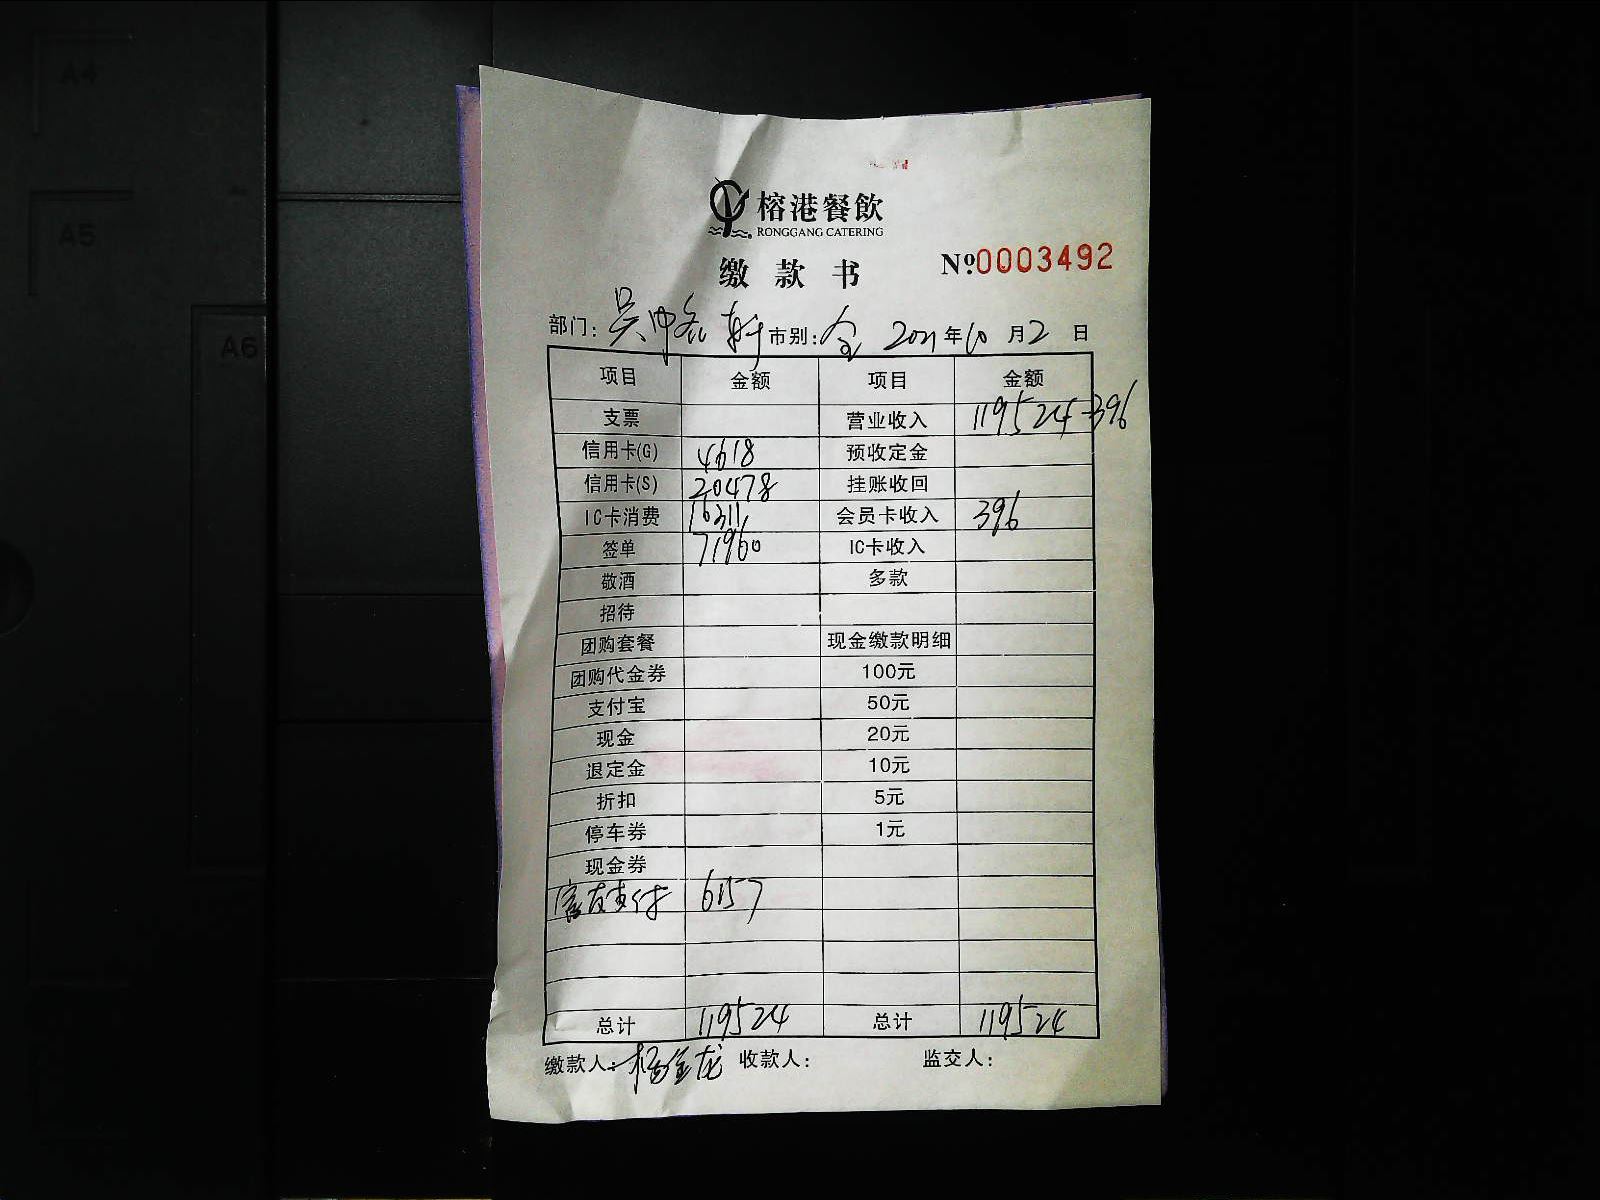 A4
A5
A6
榕港餐飲
RONGGANG CATERING
缴款书 №0003492
部门: 吴中名轩 市别: 全 2021年10月2日
项目 金额 项目 金额
支票 营业收入 119524-396
信用卡(G) 4618 预收定金
信用卡(S) 20478 挂账收回
IC卡消费 16311 会员卡收入 396
签单 71960 IC卡收入
敬酒 多款
招待
团购套餐 现金缴款明细
团购代金券 100元
支付宝 50元
现金 20元
退定金 10元
折扣 5元
停车券 1元
现金券
支付 6157
总计 119524 总计 119524
缴款人: 杨金龙 收款人: 监交人: